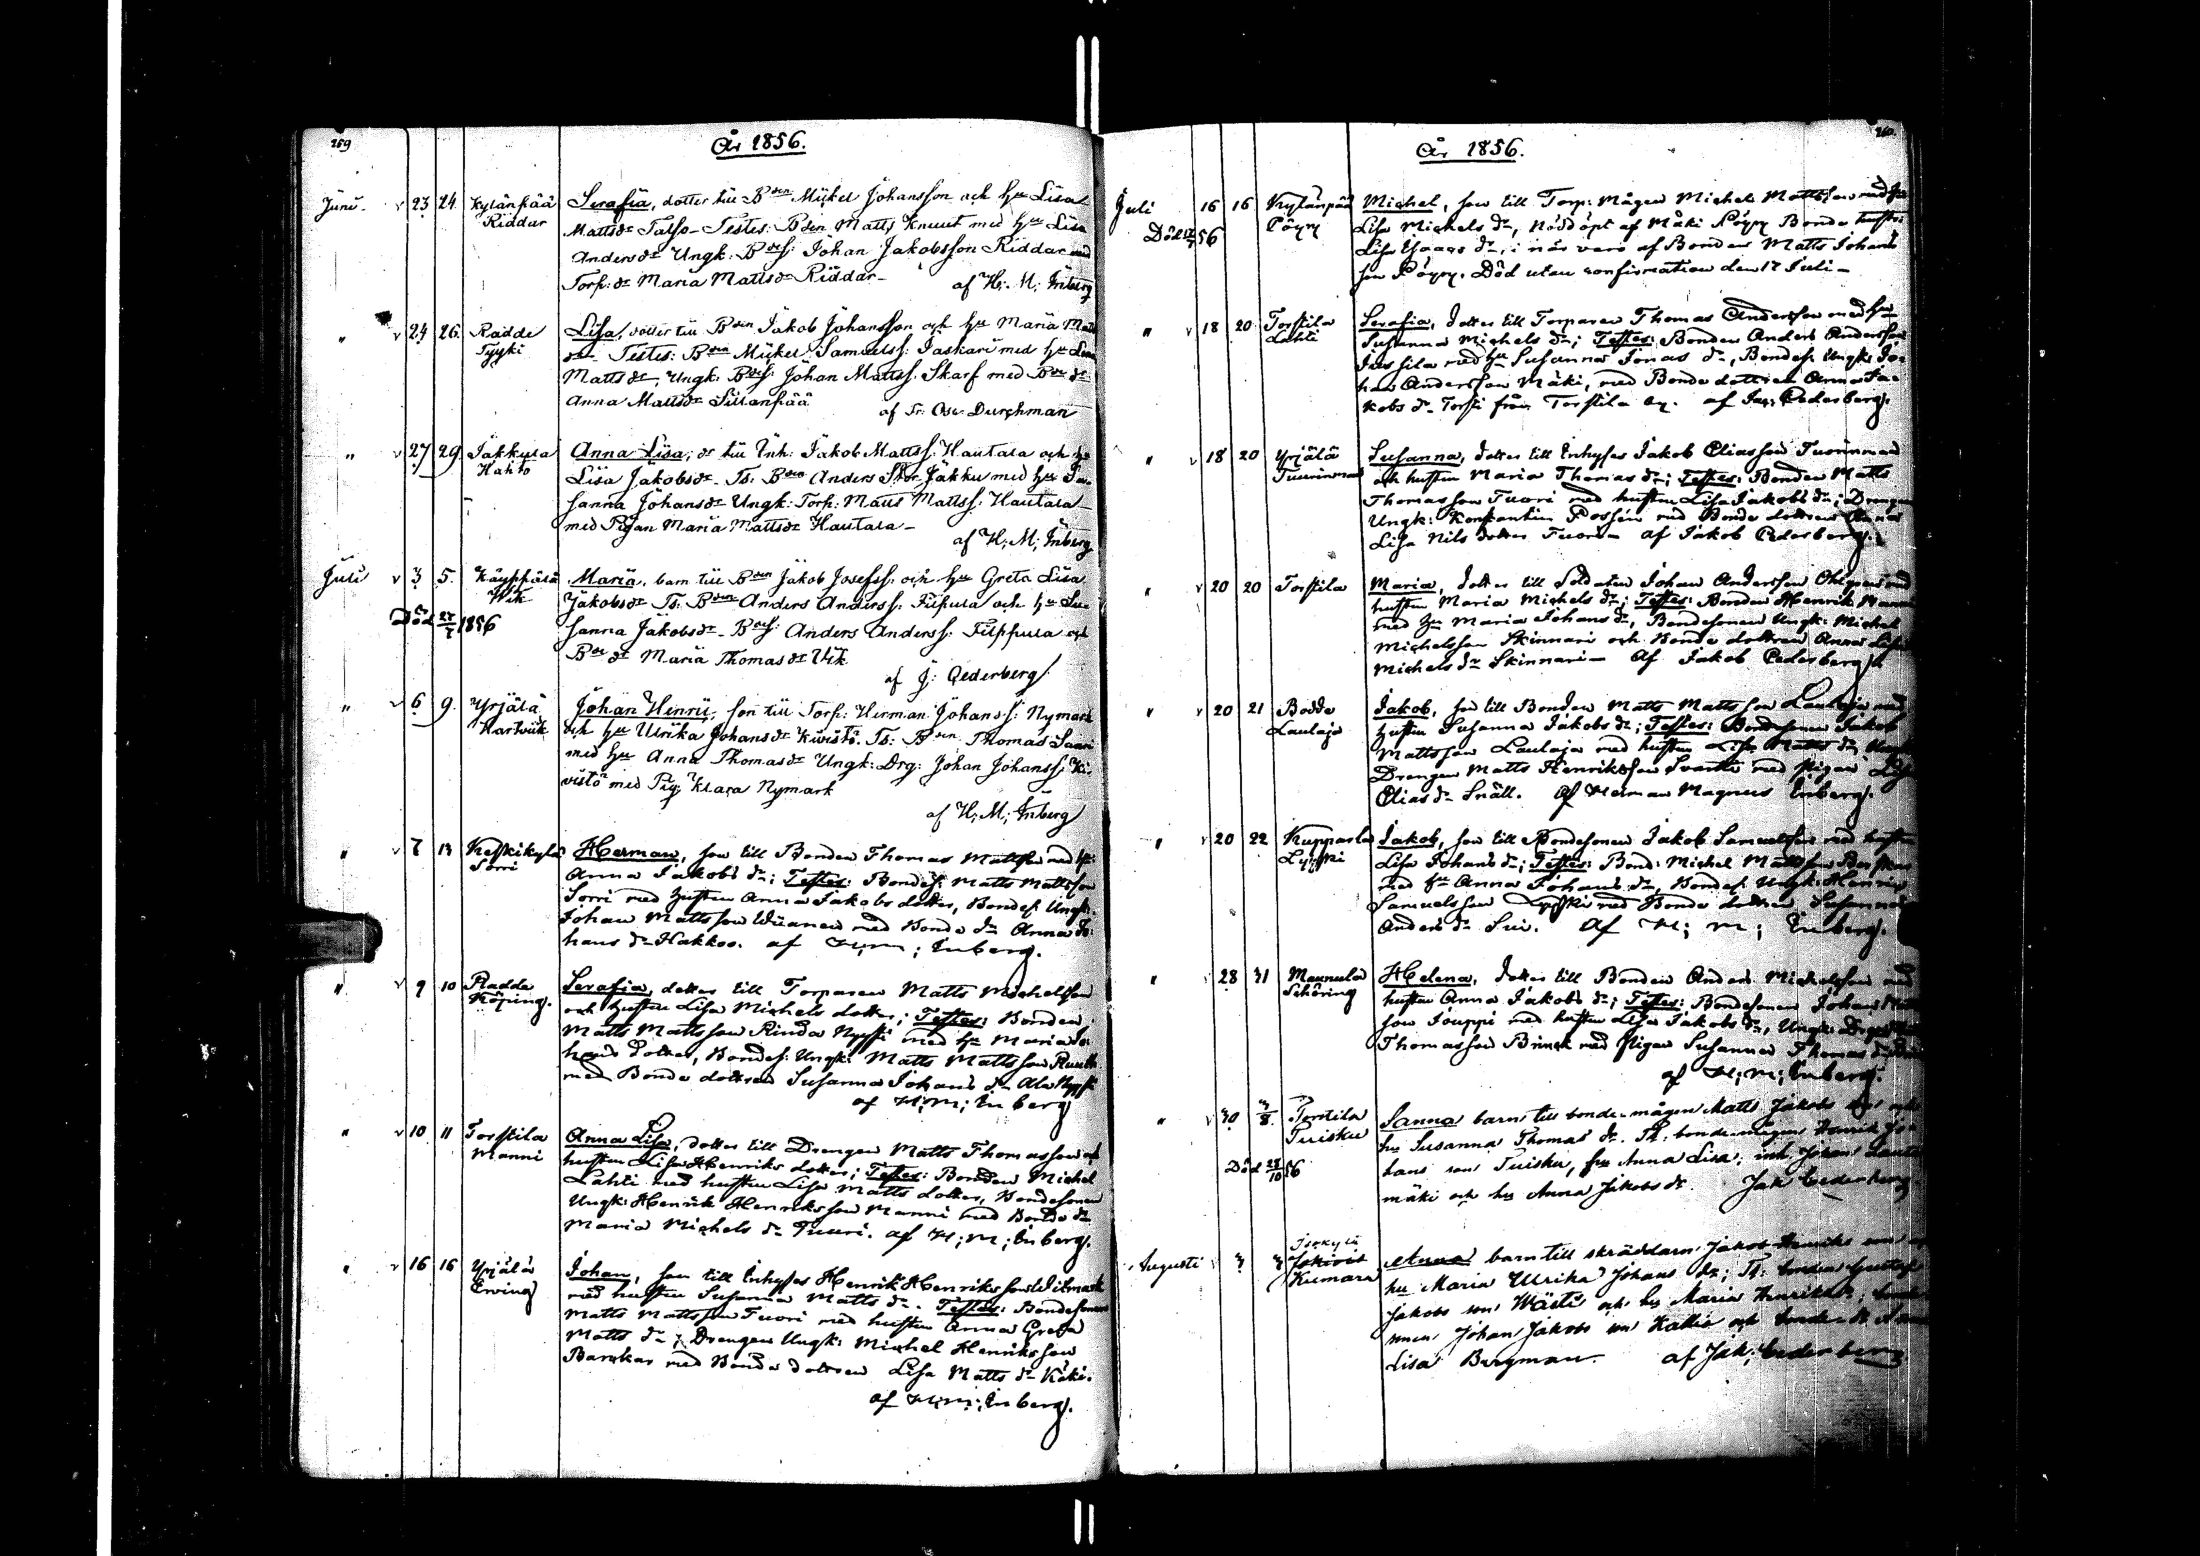 259
År 1856.
Juni
23 24. Kylänpää
Riddar
Serafia, dotter till Bden Mickel Johansson och hu Lisa
Mattsdr Talso- Testes: Bden Matts Knuut med hu Lisa
Andersdr Ungk: Bdes: Johan Jakobsson Riddar med
Torp: dr Maria Mattsdr Riddar-
af H: M: Inberg
" 24 26. Radde
Tyyki
Lisa, dotter till Bden Jakob Johansson och hu Maria Matts
dr Testes: Bden Mickel Samuelss: Jaskari med hu Lisa
Mattsdr, Ungk: Bdes: Johan Mattss: Skarf med Bde dr
Anna Mattsdr Sillanpää
af Durchman
" 27 29 Jakkula
Hahto
Anna Lisa, dr till Inh: Jakob Mattss: Hautala och hu
Lisa Jakobsdr- Ts: Bden Anders Stor Jakku med hu Su-
sanna Johansdr Ungk: Torp: Matts Mattss: Hautala
med Pigan Maria Mattsdr Hautala-
af H; M; Inberg
Juli 3 5. Käyppälä
Wik
Död 27/7 1856
Maria, barn till Bden Jakob Josefss: och hu Greta Lisa
Jakobsdr Ts: Bden Anders Anderss: Filpula och hu Su-
sanna Jakobsdr- Bdes: Anders Anderss: Filppula och
Bde dr Maria Thomasdr Wik
af J: Cederberg/
" 6 9. Yrjälä
Hartwik
Johan Henrik, son till Torp: Herman Johanss: Nymark
och hu Ulrika Johansdr Kivistö. Ts: Bden Thomas Saari
med hu Anna Thomasdr Ungk: Drg: Johan Johanss: Ki-
vistö med Pig: Klara Nymark
af H; M; Inberg
" 7 13 Keskikylä
Sorri
Herman, son till Bonden Thomas Mattsson med hu
Anna Jakobs dr; Testes: Bondes: Matts Mattsson
Sorri med hustru Anna Jakobs dotter, Bondes: Ungk:
Johan Mattsson Wiianen med Bonde dr Anna Jo-
hans dr Hakkoo. af H; M; Inberg.
" 9 10 Radde
Köping.
Serafia, dotter till Torparen Matts Michelsson
och hustru Lisa Michels dotter; Testes: Bonden
Matts Mattsson Rinda Nyppi med hu Maria Jo-
hans dotter, Bondes: Ungk: Matts Mattsson
med Bonde dottren Susanna Johans dr Ala Nyppi
af H; M; Inberg
" 10 11 Torstila
Manni
Anna Lisa, dotter till Drengen Matts Thomasson och
hustru Lisa Henriks dotter; Testes: Bonden Michel
Lahti med hustru Lisa Matts dotter, Bondesonen
Ungk: Henrik Henriksson Manni med Bonde dr
Maria Michels dr Tuuri. af H; M; Inberg.
" 16 16 Yrjälä
Erving
Johan, son till Inhyses Henrik Henriksson Witmark
med hustru Susanna Matts dr. Testes: Bondesonen
Matts Mattsson Tuori med hustru Anna Greta
Matts dr; Drengen Ungk: Michel Henriksson
Barckar med Bonde dottren Lisa Matts dr Käki.
af H; M; Inberg.
260.
År 1856.
Juli 16 16 Kylänpää
Pöyry
Död 17/7 56
Michel, son till Torp: Mågen Michel Mattsson med hu
Lisa Michels dr, Nöddöpt af Mäki Pöyry Bonde hustru
Lisa dr, i när varo af Bonden Matts Johans
son Pöyry. Död utan confirmation den 17 Juli-
" 18 20 Torstila
Lahti
Serafia, dotter till Torparen Thomas Andersson med hu
Susanna Michels dr; Testes: Bonden Anders Andersson
Jussila med hu Susanna Jonas dr, Bondes: Ungk: Jo-
han Andersson Mäki, med Bonde dottren Anna Ja-
kobs dr Torsti från Torstila by. af Jac; Cederberg.
" 18 20 Yrjälä
Tuurinmaa
Susanna, dotter till Inhyses Jakob Eliasson Tuurinmaa
och hustru Maria Thomas dr; Testes: Bonden Matts
Thomasson Tuori med hustru Lisa Jakobs dr; Drengen
Ungk: Konstantin Possén med Bonde dottren Anna
Lisa Nils dotter Tuori- af Jakob Cederberg.
" 20 20 Torstila
Maria, dotter till Soldaten Johan Andersson med
hustru Maria Michels dr; Testes: Bonden Henrik Manni
med hu Maria Johans dr, Bondesonen Ungk: Michel
Michelsson Skinnari och Bonde dottren Anna Lisa
Michels dr Skinnari- Af Jakob Cederberg.
" 20 21 Bodde
Laulaja
Jakob, son till Bonden Matts Mattsson Laulaja med
hustru Susanna Jakobs dr; Testes: Bondesonen Jakob
Mattsson Laulaja med hustru Lisa Matts dr Ungk:
Drengen Matts Henriksson Svartti med pigan Lisa
Elias dr Snäll. Af Herman Magnus Inberg.
" 20 22 Kupparla
Lyyski
Jakob, son till Bondesonen Jakob Samuelsson med hustru
Lisa Johans dr; Testes: Bond: Michel Mattsson
med hu Anna Johans dr, Bondes: Ungk: Henrik
Samuelsson Lyyski med Bonde dottren Susanna
Anders dr Sui. Af H; M; Inberg.
" 28 31 Maunula
Schöring
Helena, dotter till Bonden Anders Michelsson med
hustru Anna Jakobs dr; Testes: Bondesonen Johan
son Jouppi med hustru Lisa Jakobs dr, Ungk: Drg:
Thomasson Brinck med Pigan Susanna Thomas dotter
af H; M; Inberg.
" 30 3/8 Torstila
Tuisku
Död 28/10 56
Sanna barn till bonde-mågen Matts Jakobs son och
hu Susanna Thomas dr. Tt: bonde-mågen Henrik Jo-
hans son Tuisku, fru Anna Lisa; inh. Johan Lauta-
mäki och hu Anna Jakobs dr. Jak Cederberg.
Augusti 3 3 Isokylä
Kumara
Anna barn till skräddarn Jakob Henriks son och
hu Maria Ulrika Johans dr; Tt: bonden Gustaf
Jakobs son Wästi och hu Maria Henriksdr, bonde-
sonen Johan Jakobs son Kallia och bonde-dr Anna
Lisa Bergman. af Jak; Cederberg